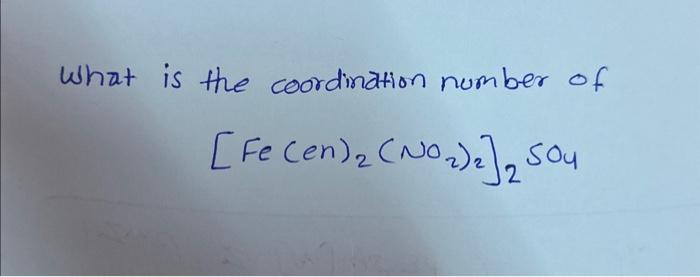 what is the coordination number of
[Fe(en)₂(NO₂)₂]₂SO₄